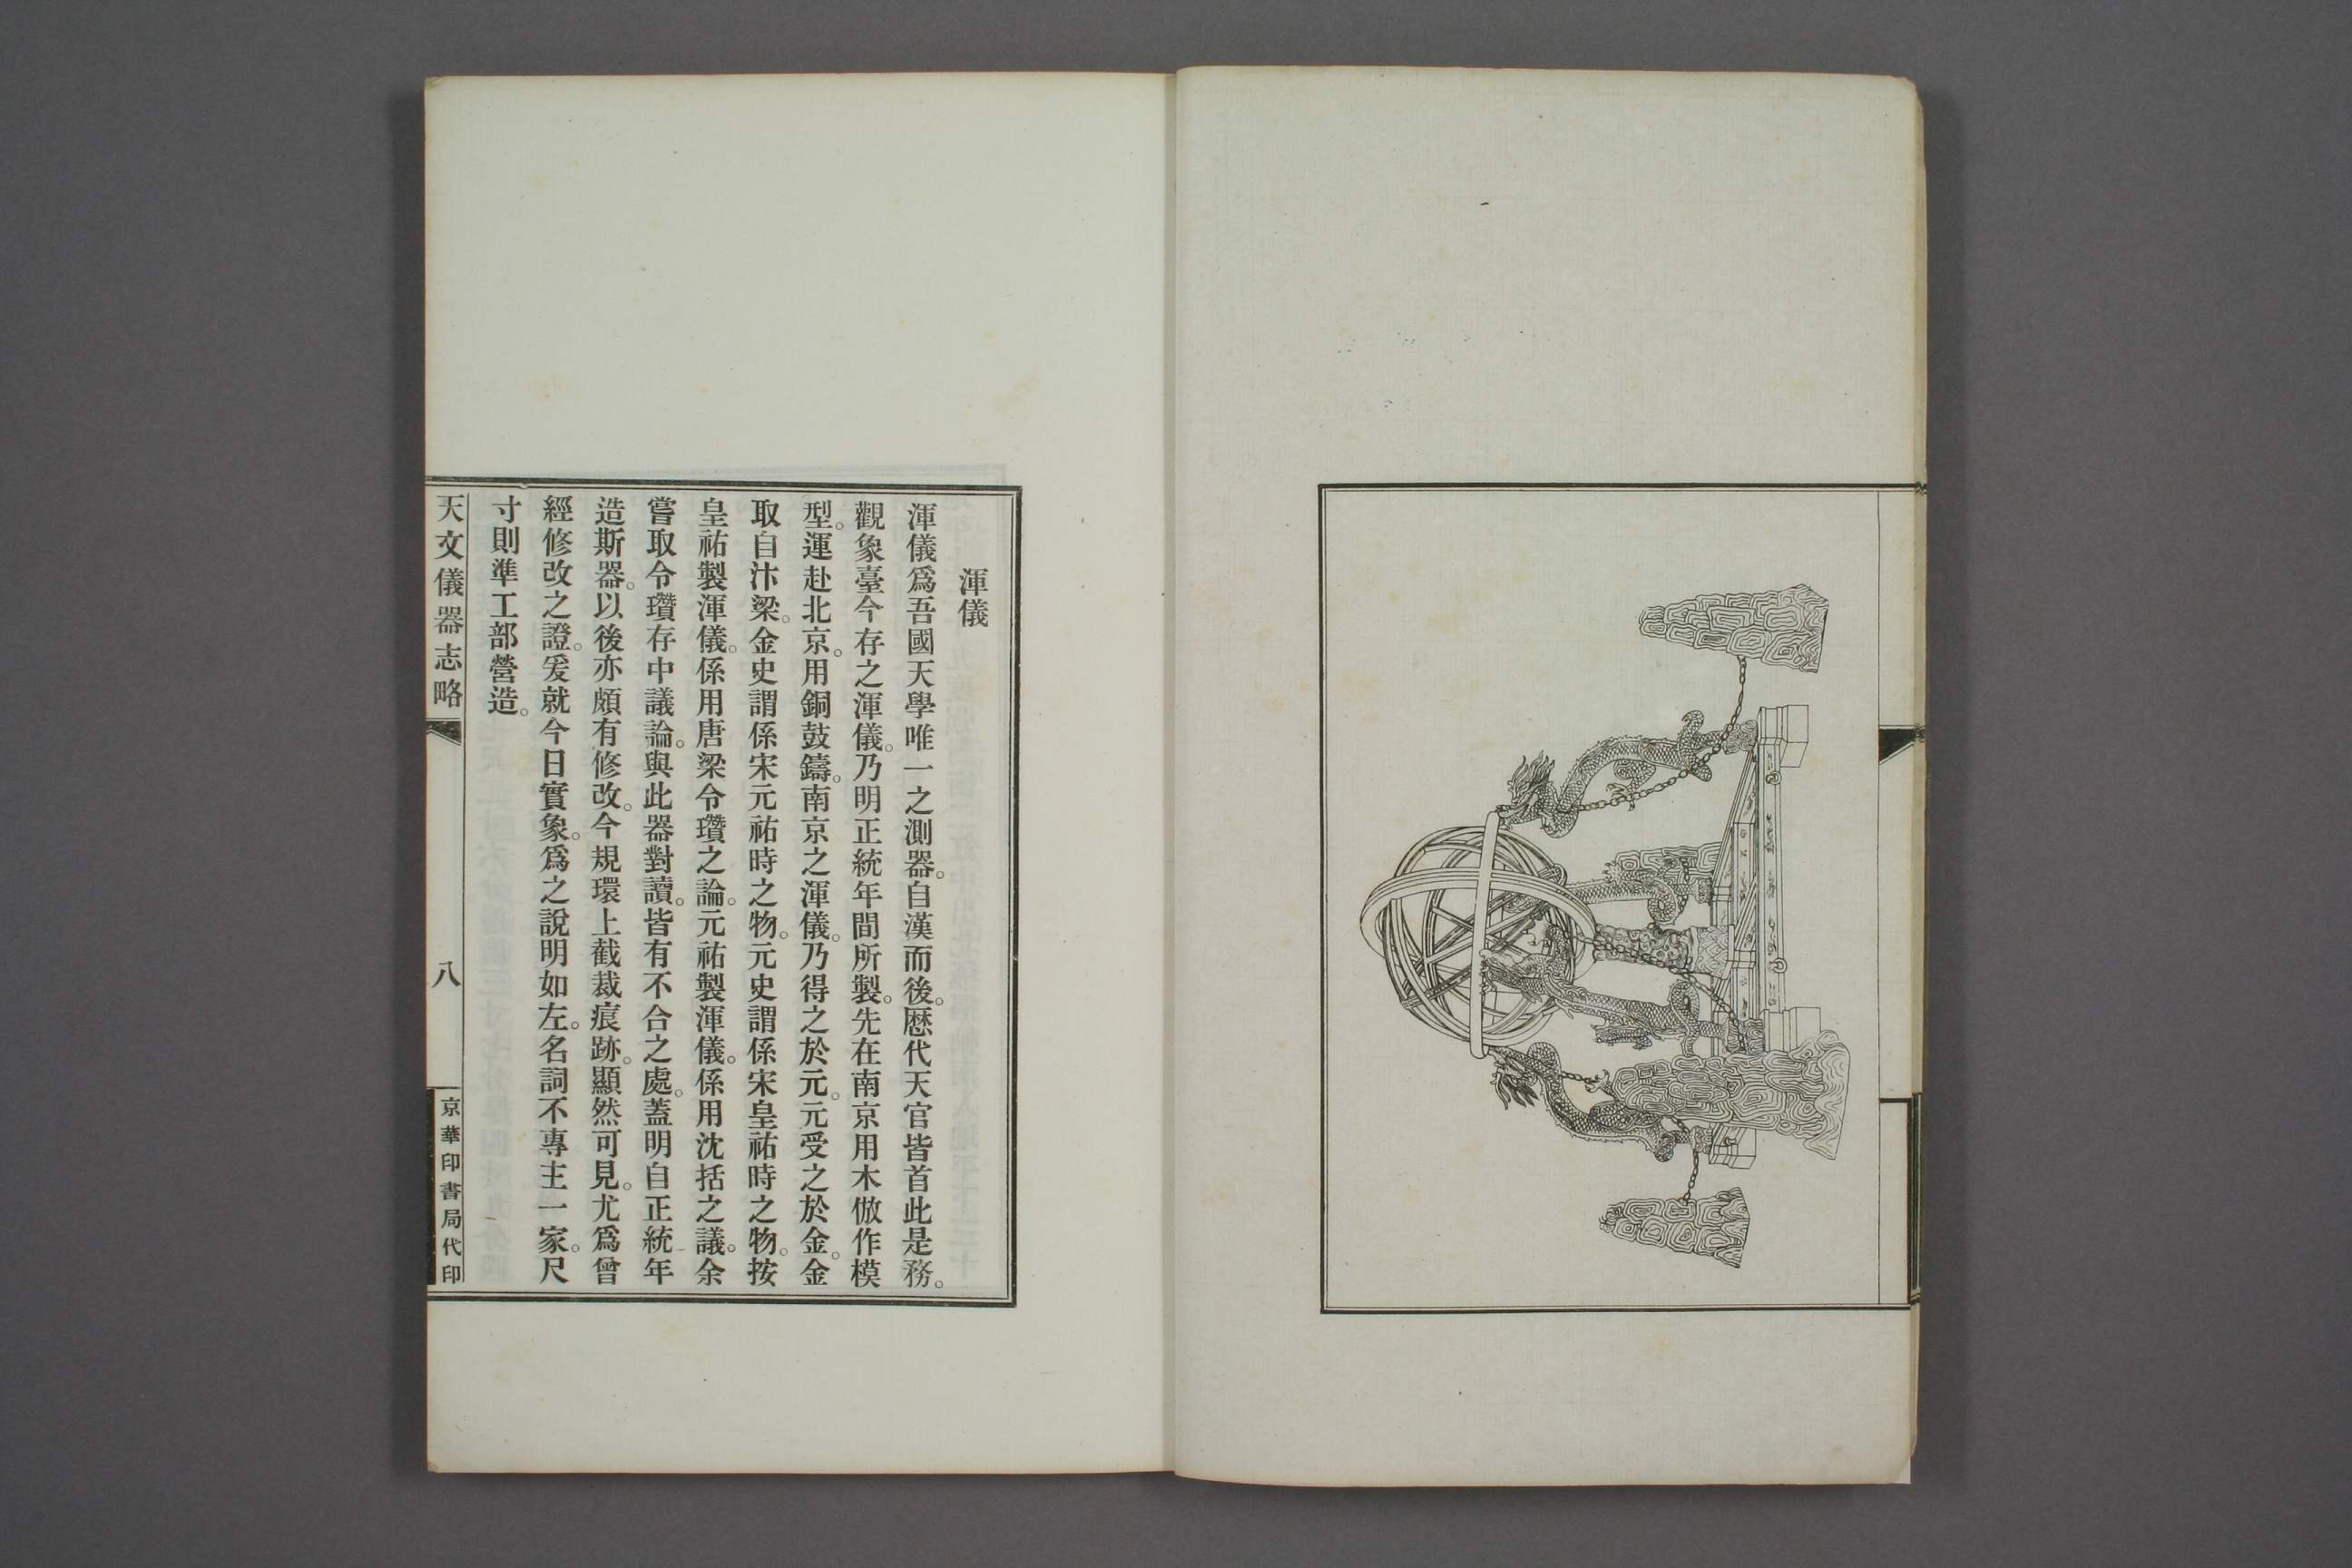 渾儀
渾儀爲吾國天學唯一之測器。自漢而後。歴代天官皆首此是務。
觀象臺今存之渾儀。乃明正統年間所製。先在南京用木倣作模
型。運赴北京。用銅鼓鑄。南京之渾儀。乃得之於元。元受之於金。金
取自汴梁。金史謂係宋元祐時之物。元史謂係宋皇祐時之物。按
皇祐製渾儀。係用唐梁令瓚之論。元祐製渾儀。係用沈括之議。余
嘗取令瓚存中議論。與此器對讀。皆有不合之處。蓋明自正統年
造斯器。以後亦頗有修改。今規環上截裁痕跡。顯然可見。尤爲曾
經修改之證。爰就今日實象。爲之說明如左。名詞不專主一家。尺
寸則準工部營造。
天文儀器志略
八
京華印書局代印